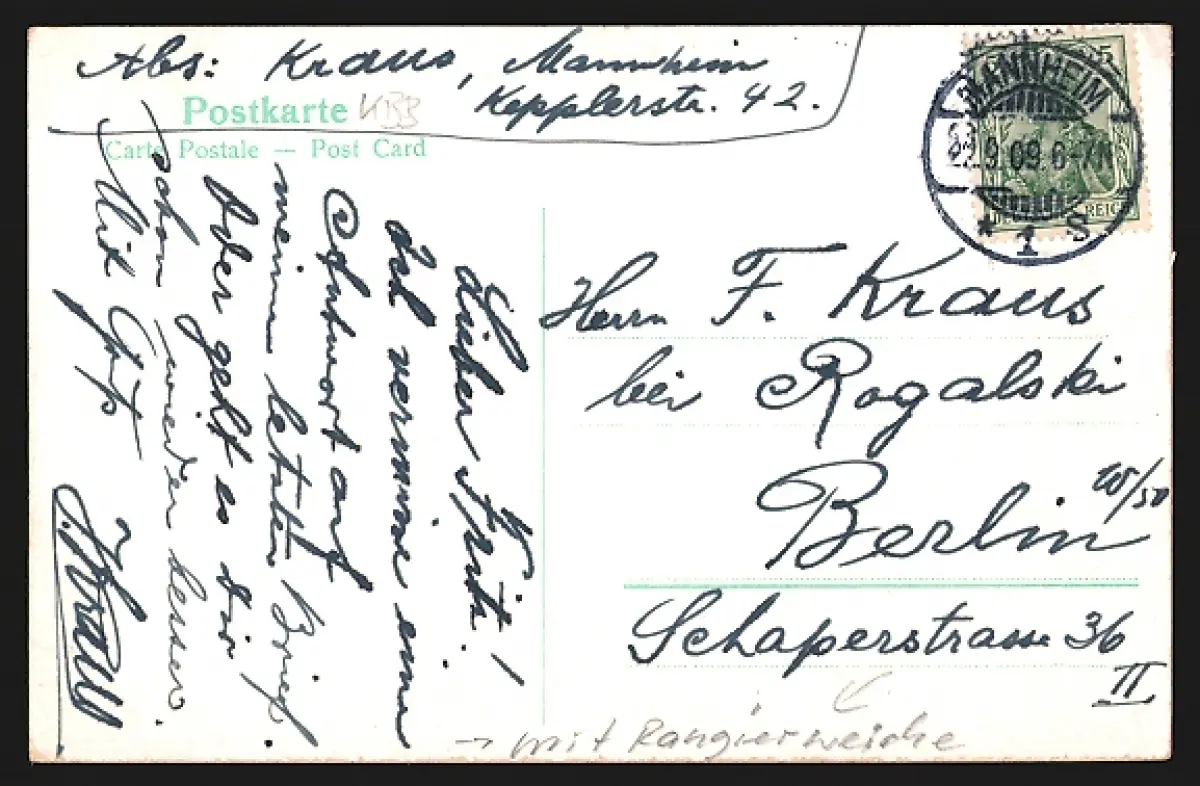 Abs: Kraus, Mannheim
Kepplerstr. 42.
Postkarte KBB
Carte Postale — Post Card
MANNHEIM
22.9.09.6-7N
* 1 S
REICH
Herrn F. Kraus
bei Rogalski
Berlin W/50
Schaperstrasse 36
II
Lieber Fritz!
Ich vermisse eine
Antwort auf
meinen letzten Brief.
Aber geht es Dir
schon wieder besser.
Mit Gruß
Kraus
→ mit Rangierweiche